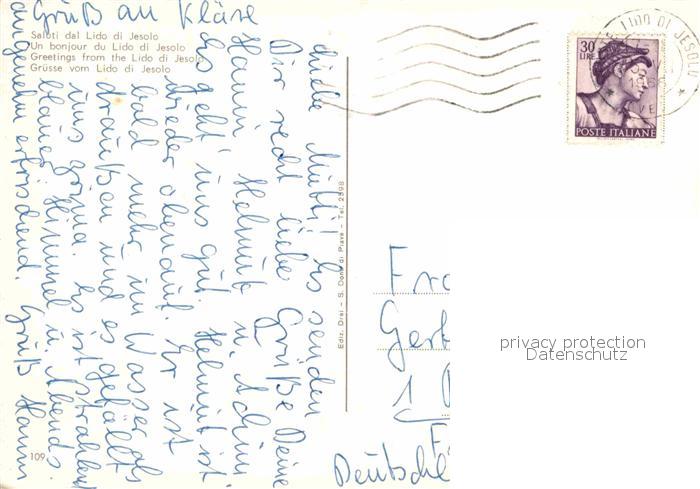 Gruß an Kläre
Saluti dal Lido di Jesolo
Un bonjour du Lido di Jesolo
Greetings from the Lido di Jesolo
Grüsse vom Lido di Jesolo
Liebe Mutti! Es senden
Dir recht liebe Grüße Deine
Hanni, Helmut u. Achim
Es geht uns gut. Helmut ist
wieder obenauf. Er ist
bald mehr im Wasser als
draußen und es gefällt
uns prima. Es ist strahlend
blauer Himmel u. Abends
angenehm erfrischend. Gruß Hanni
109
Ediz. Drei - S. Donà di Piave - Tel. 2598
LIDO DI JESOLO
VE
30
LIRE
POSTE ITALIANE
Fra
Gert
1
Deutsche
privacy protection
Datenschutz